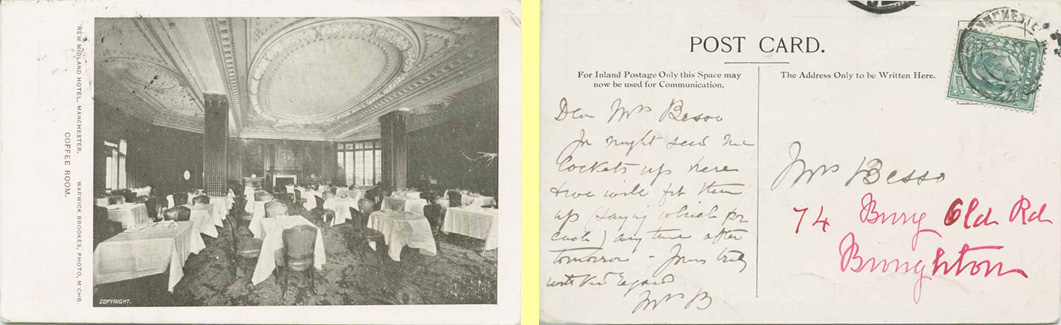 NEW MIDLAND HOTEL, MANCHESTER.
WARWICK BROOKES, PHOTO, M'CHR.
COFFEE ROOM.
COPYRIGHT.
POST CARD.
For Inland Postage Only this Space may
now be used for Communication.
The Address Only to be Written Here.
Dear Mrs Besso
might send me
up here
& we will fit them
up saying which for
) any time after
tomorrow - Yours truly
with Kd Regards
Mrs B
Mrs Besso
74 Bury Old Rd